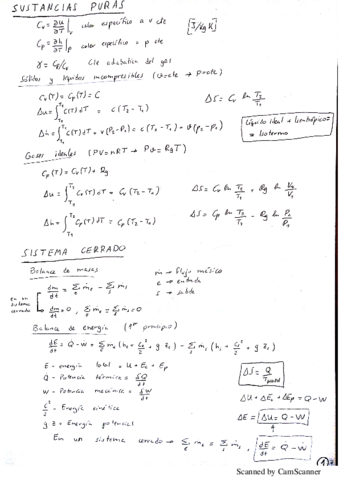 SUSTANCIAS PURAS
Cv = ∂u/∂T |v calor específico a v cte [J/kg K]
Cp = ∂h/∂T |p calor específico a p cte
γ = Cp/Cv Cte adiabática del gas
Sólidos y líquidos incompresibles (v=cte → ρ=cte)
Cv(T) = Cp(T) = C
Δu = ∫ C(T) dT = c (T2 - T1) ΔS = Cv ln T2/T1
Δh = ∫ C(T) dT + v (P2-P1) = c (T2 - T1) + v (p2 - p1)
Líquido ideal + isentrópico = isotermo
Gases ideales (PV = nRT → Pv = RgT)
Cp(T) = Cv(T) + Rg
Δu = ∫ Cv(T) dT = Cv (T2 - T1) ΔS = Cv ln T2/T1 + Rg ln V2/V1
Δh = ∫ Cp(T) dT = Cp (T2 - T1) ΔS = Cp ln T2/T1 - Rg ln P2/P1
SISTEMA CERRADO
Balance de masas
ṁ → flujo másico
e → entrada
s → salida
dm/dt = Σ ṁe - Σ ṁs
en un sistema cerrado
dm/dt = 0 , Σ ṁe = Σ ṁs = 0
Balance de energía (1er principio)
dE/dt = Q̇ - Ẇ + Σ ṁe (he + Ce²/2 + g ze) - Σ ṁs (hs + Cs²/2 + g zs)
E - energía total = U + Ec + Ep
Q̇ - Potencia térmica = δQ/dt
Ẇ - Potencia mecánica = δW/dt
c²/2 - Energía cinética
g z - Energía potencial
ΔU + ΔEc + ΔEp = Q - W
ΔE = ΔU = Q - W
En un sistema cerrado → Σ ṁe = Σ ṁs , dE/dt = Q̇ - Ẇ
1
Scanned by CamScanner